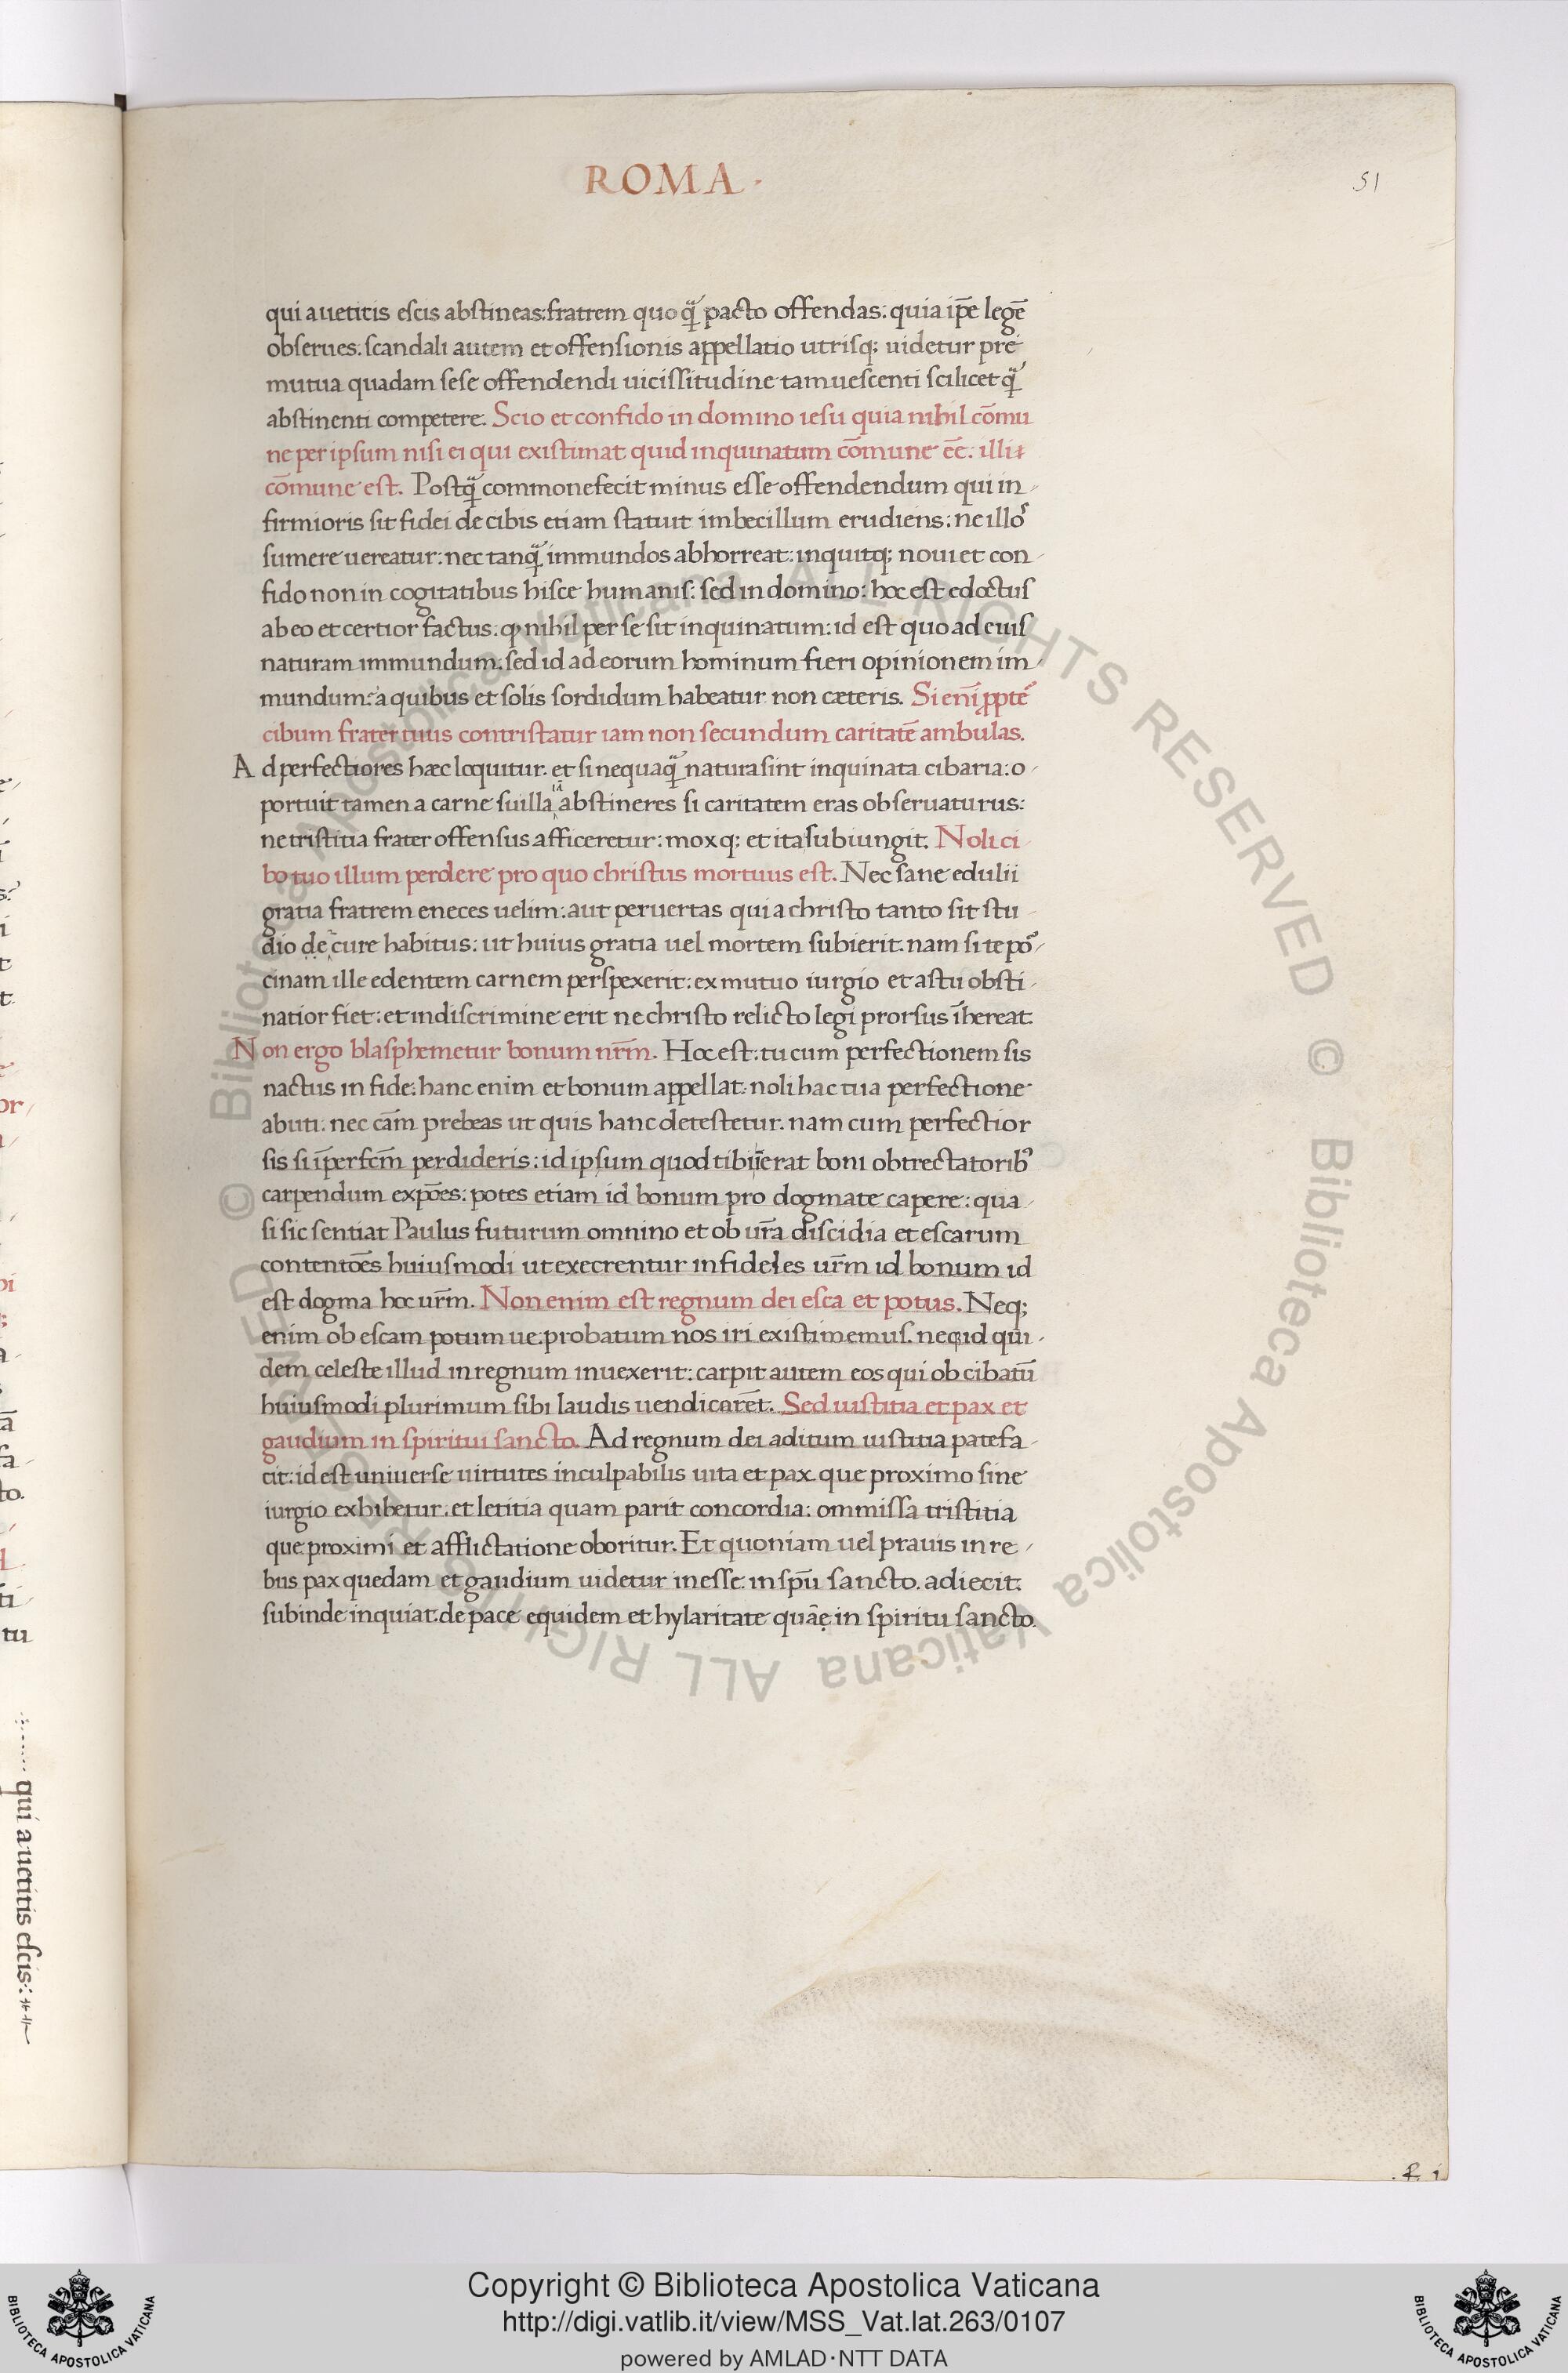 ROMA.
51
qui a uetitis escis abstineas: fratrem quo q̃ pacto offendas: quia ip̃e legẽ
obserues. scandali autem et offensionis appellatio utrisq; uidetur pre
mutua quadam sese offendendi uicissitudine tam uescenti scilicet q̃
abstinenti competere. Scio et confido in domino iesu quia nihil cõmu
ne per ipsum nisi ei qui existimat quid inquinatum cõmune ẽe. illi
cõmune est. Postq̃ commonefecit minus esse offendendum qui in
firmioris sit fidei de cibis etiam statuit imbecillum erudiens: ne illoꝰ
sumere uereatur: nec tanq̃ immundos abhorreat: inquitq; noui et con
fido non in cogitatibus hisce humanis: sed in domino: hoc est edoctus
ab eo et certior factus: ꝙ nihil per se sit inquinatum: id est quo ad eius
naturam immundum. sed id ad eorum hominum fieri opinionem im
mundum: a quibus et solis sordidum habeatur non cæteris. Si eni᷃ ꝓpte᷃
cibum frater tuus contristatur iam non secundum caritatẽ ambulas.
Ad perfectiores hæc loquitur. et si nequaq̃ natura sint inquinata cibaria: o
portuit tamen a carne suilla iã abstineres si caritatem eras obseruaturus:
ne tristitia frater offensus afficeretur: moxq; et ita subiungit. Noli ci
bo tuo illum perdere pro quo christus mortuus est. Nec sane edulii
gratia fratrem eneces uelim: aut peruertas qui a christo tanto sit stu
dio de cure habitus: ut huius gratia uel mortem subierit. nam si te põ
cinam ille edentem carnem perspexerit: ex mutuo iurgio et astu obsti
natior fiet: et in discrimine erit ne christo relicto legi prorsus ĩhereat.
Non ergo blasphemetur bonum nr̃m. Hoc est: tu cum perfectionem sis
nactus in fide: hanc enim et bonum appellat: noli hac tua perfectione
abuti: nec cãm prebeas ut quis hanc detestetur. nam cum perfectior
sis si ĩperfcm̃ perdideris: id ipsum quod tibi ĩerat boni obtrectatoribꝰ
carpendum expões: potes etiam id bonum pro dogmate capere: qua
si sic sentiat Paulus futurum omnino et ob ur̃a discidia et escarum
contentões huiusmodi ut execrentur infideles ur̃m id bonum id
est dogma hoc ur̃m. Non enim est regnum dei esca et potus. Neq;
enim ob escam potum ue probatum nos iri existimemus. neq id qui
dem celeste illud in regnum inuexerit: carpit autem eos qui ob cibatũ
huiusmodi plurimum sibi laudis uendicarẽt. Sed iustitia et pax et
gaudium in spiritui sancto. Ad regnum dei aditum iustitia patefa
cit: id est uniuerse uirtutes inculpabilis uita et pax que proximo sine
iurgio exhibetur. et letitia quam parit concordia: ommissa tristitia
que proximi et afflictatione oboritur. Et quoniam uel prauis in re
bus pax quedam et gaudium uidetur inesse. in spũ sancto. adiecit:
subinde inquiat. de pace equidem et hylaritate quã ę in spiritu sancto.
qui a uetitis escis:
Copyright © Biblioteca Apostolica Vaticana
http://digi.vatlib.it/view/MSS_Vat.lat.263/0107
powered by AMLAD·NTT DATA